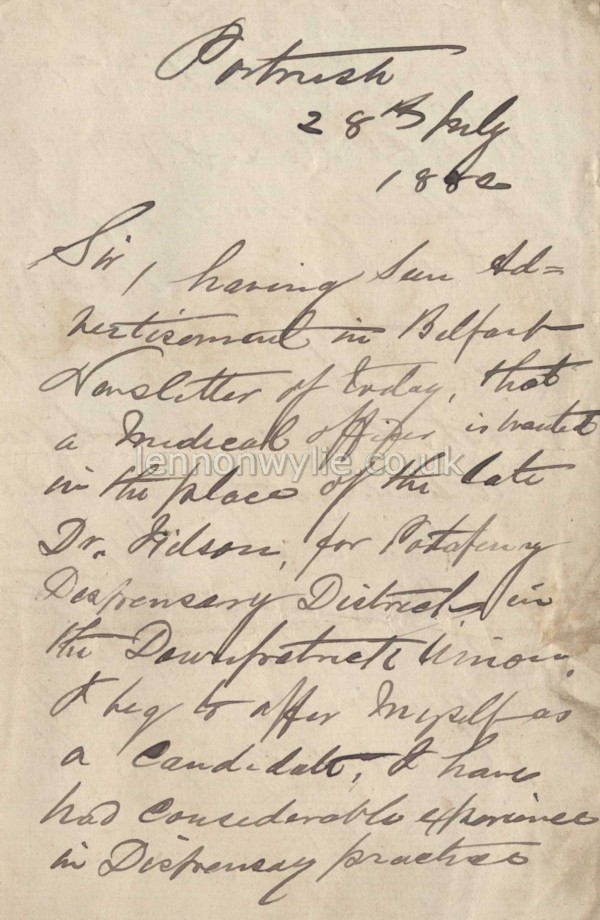 Portrush
28th July
188
Sir, having seen Ad=
vertisement in Belfast
Newsletter of today, that
a Medical officer is wanted
in the place of the late
lennonwylie.co.uk
Dr. for Portaferry
Dispensary District in
the Downpatrick Union,
I beg to offer Myself as
a Candidate, I have
had considerable experience
in Dispensay practice